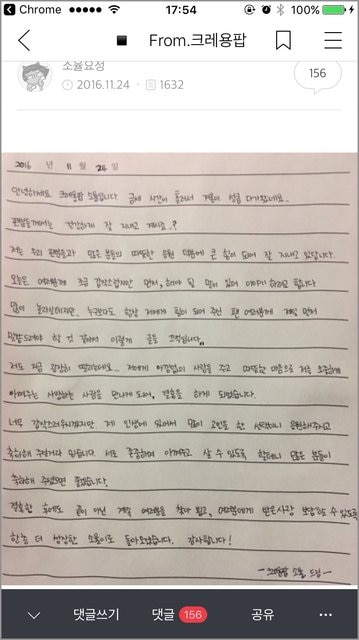 Chrome 17:54 100%
From.크레용팝
소율요정
2016.11.24 · 1632
156
2016 년 11 월 24 일
안녕하세요 크레용팝 소율입니다. 금세 시간이 흘러서 겨울이 성큼 다가왔네요..
팬분들께서는 건강하게 잘 지내고 계시죠..?
저는 우리 팬분들과 많은 분들의 따뜻한 응원 덕분에 큰 힘이 되어 잘 지내고 있답니다.
오늘은 여러분께 조금 갑작스럽지만 먼저, 해야 될 말이 있어 이야기 하려고 합니다
많이 놀라실테지만.. 누구보다도 항상 저에게 힘이 되어 주신 팬 여러분께 제일 먼저
말씀드려야 할 것 같아서 이렇게 글을 끄적입니다..
저도 지금 굉장히 떨리는데요... 저에게 아낌없이 사랑을 주고 따뜻한 마음으로 저를 소중하게
아껴주는 사랑하는 사람을 만나게 되어, 결혼을 하게 되었습니다.
너무 갑작스러우시겠지만 제 인생에 있어서 많이 고민을 한 선택이니 응원해주시고
축하해 주셨으면 합니다. 서로 존중하며 아껴주고 살 수 있도록 할테니 많은 분들이
축하해 주셨으면 좋겠습니다.
결혼한 후에도 끝이 아닌 계속 여러분을 찾아 뵙고, 여러분에게 받은사랑 보답할 수 있도록
한층 더 성장한 소율이로 돌아오겠습니다. 감사합니다!
- 크레용팝 소율 드림 -
댓글쓰기 댓글 156 공유